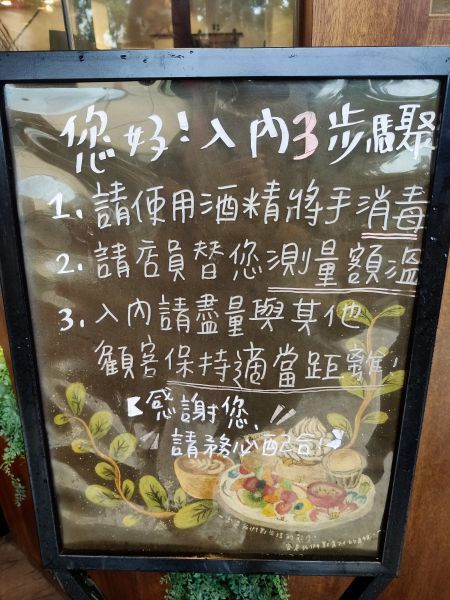 您好!入內3步驟
1. 請使用酒精將手消毒
2. 請店員替您測量額溫
3. 入內請盡量與其他
顧客保持適當距離!
感謝您、
請務必配合!